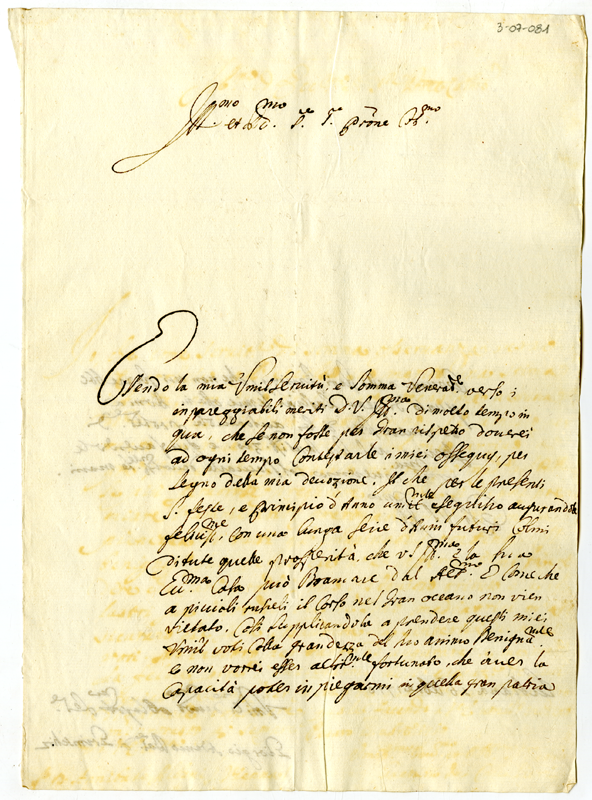 3-07-081
Ill.mo et S.r S.r Prône
Essendo la mia Umil servitù, e somma Venerat.e verso i
inpareggiabili meriti D. V. Ill.ma di molto tempo in
qua, che se non fosse per gran rispetto doverei
ad ogni tempo Contestarle i miei ossequy, per
segno della mia devozione. Il che per le presenti
S. feste, e principio d'Anno umil.nte eseguisco augurandole
felic.me, con una lunga serie d'Anni futuri Colmi
di tute quelle prosperità, che V.S. Ill.ma e la sua
Ecc.ma Casa può Bramare dal Alt.mo E Come che
a piccioli ruscelli il Corso nel gran oceano non vien
vietato, Così supplicandola a prendere questi miei
Umili voti colla grandezza del suo animo Benigna.nte
e non vorrei esser altri.nte fortunato, che aver la
Capacità poter inpiegarmi in quella gran patria